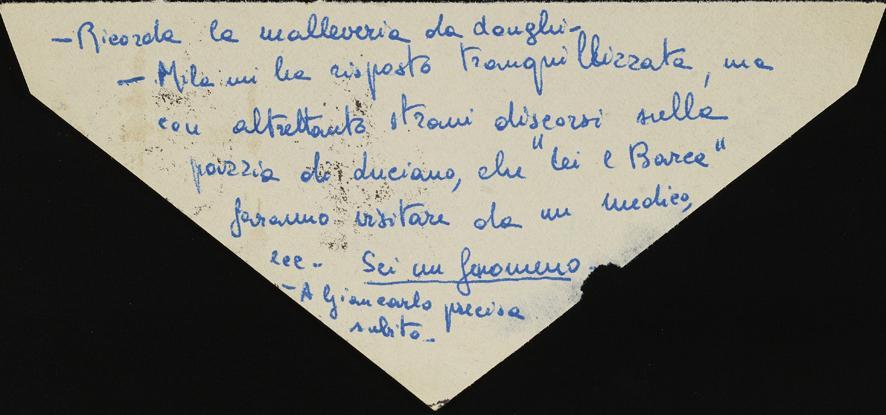 – Ricorda la malleveria da Longhi –
– Mila mi ha risposto tranquillizzata, ma
con altrettanto strani discorsi sulla
pazzia di Luciano, che "lei e Barca"
faranno visitare da un medico,
ecc. Sei un fenomeno.
– A Giancarlo precisa
subito.